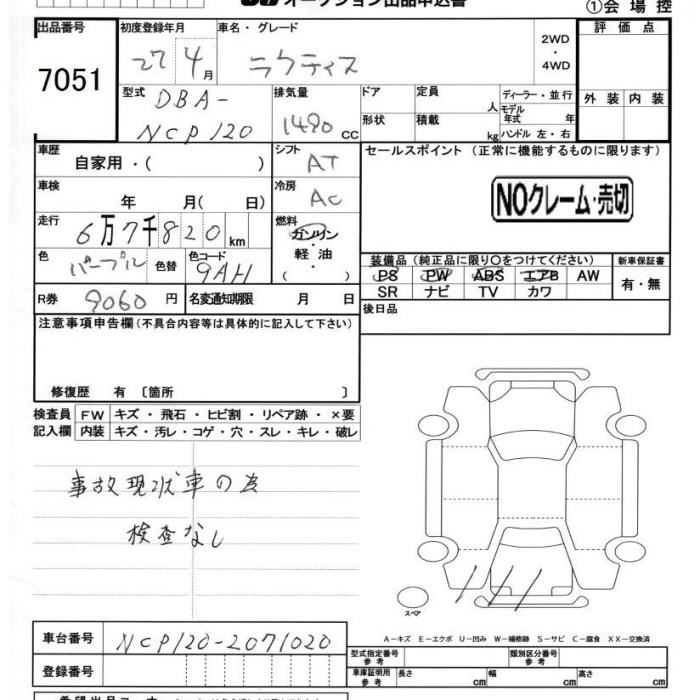 オークション出品申込書
①会場控
出品番号
初度登録年月
車名・グレード
評価点
7051
27 4月
ラクティス
2WD
・
4WD
外装 内装
型式
DBA-
NCP120
排気量
1490 CC
ドア
定員
人
ディーラー・並行
モデル
年式 年
形状
積載
kg
ハンドル 左・右
車歴
自家用・( )
シフト
AT
セールスポイント (正常に機能するものに限ります)
車検
年 月( 日)
冷房
AC
NOクレーム・売切
走行
6万7千820km
燃料
ガソリン
・
軽油
・
( )
色
パープル
色替
色コード
9AH
装備品(純正品に限り○をつけてください)
新車保証書
PS PW ABS エアB AW
有・無
SR ナビ TV カワ
R券 9060円
名変通知期限 月 日
後日品
注意事項申告欄(不具合内容等は具体的に記入して下さい)
修復歴 有 〔箇所 〕
検査員
記入欄
FW キズ・飛石・ヒビ割・リペア跡・×要
内装 キズ・汚レ・コゲ・穴・スレ・キレ・破レ
事故現状車の為
検査なし
スペア
A－キズ E－エクボ U－凹み W－補修跡 S－サビ C－腐食 XX－交換済
車台番号 NCP120-2071020
型式指定番号
参考
類別区分番号
参考
登録番号
車庫証明用
参考
長さ cm 幅 cm 高さ cm